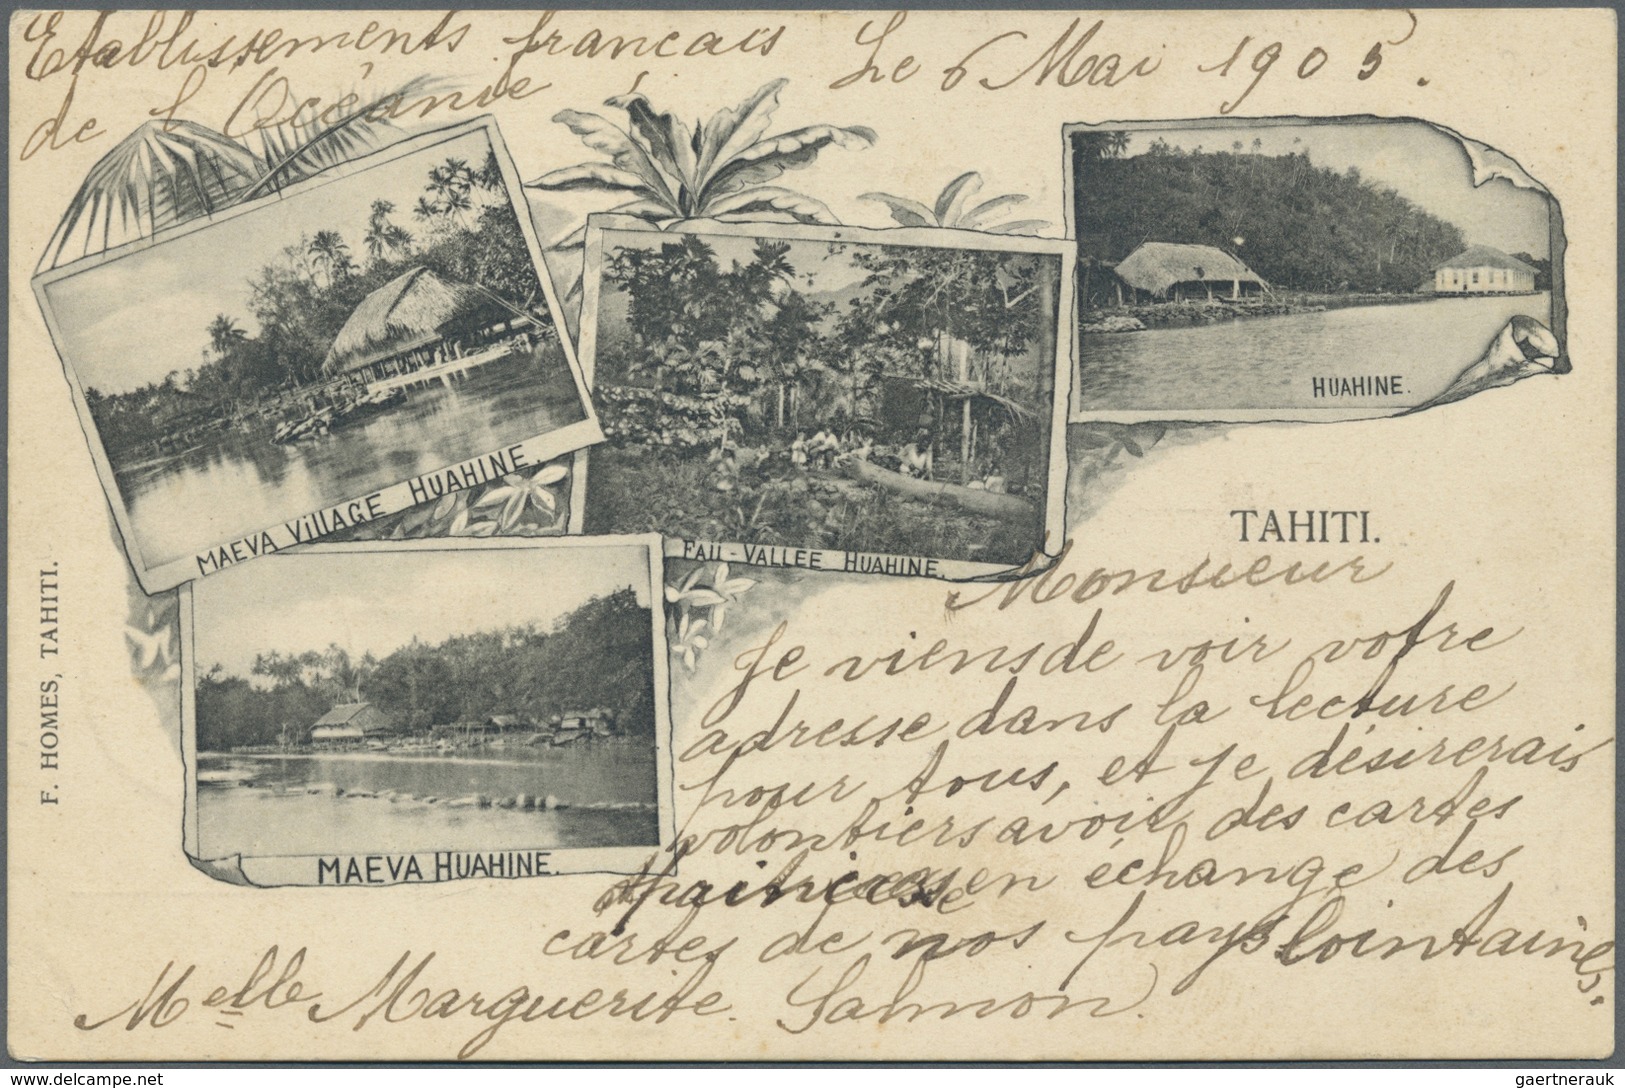 Etablissements francais Le 6 Mai 1905.
de l'Océanie
MAEVA VillAGE HUAHINE.
FAII - VALLEE HUAHINE.
HUAHINE.
TAHITI.
MAEVA HUAHINE.
F. HOMES, TAHITI.
Monsieur
Je viens de voir votre
adresse dans la lecture
pour tous, et je désirerais
volontiers avoir des cartes
en échange des
cartes de nos pays lointains.
Melle Marguerite. Salmon.
delcampe.net
gaertnerauk